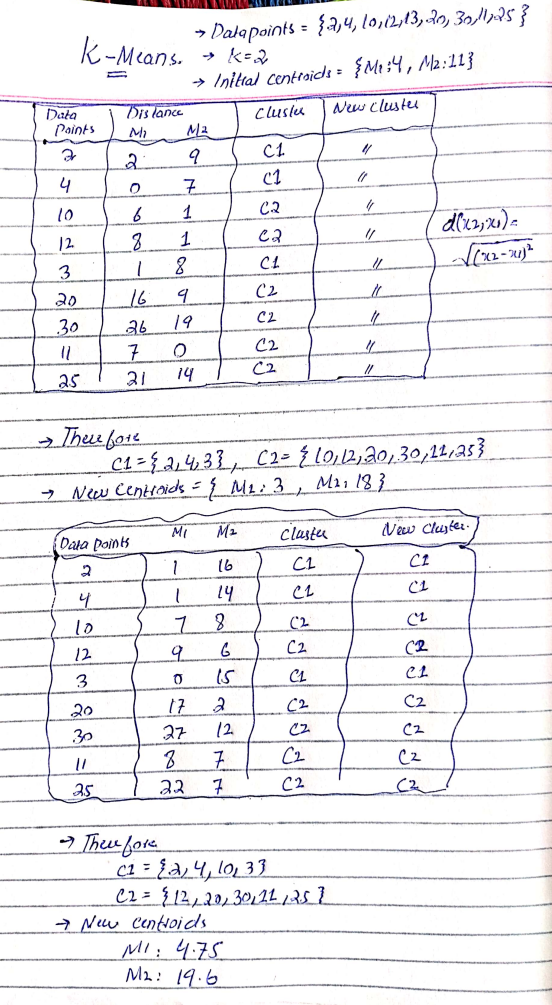 → Datapoints = {2,4,10,12,13,20,30,11,25}
K-Means. → K=2
→ Initial Centroids = {M1:4, M2:11}
Data Points Distance M1 M2 Cluster New Cluster
2 2 9 C1 "
4 0 7 C1 "
10 6 1 C2 "
12 8 1 C2 "
3 1 8 C1 "
20 16 9 C2 "
30 26 19 C2 "
11 7 0 C2 "
25 21 14 C2 "
d(x2,x1) =
√(x2-x1)²
→ Therefore
C1={2,4,3}, C2={10,12,20,30,11,25}
→ New Centroids = { M1: 3 , M2: 18}
Data Points M1 M2 Cluster New Cluster.
2 1 16 C1 C1
4 1 14 C1 C1
10 7 8 C2 C1
12 9 6 C2 C2
3 0 15 C1 C1
20 17 2 C2 C2
30 27 12 C2 C2
11 8 7 C2 C2
25 22 7 C2 C2
→ Therefore
C1 = {2,4,10,3}
C2 = {12,20,30,11,25}
→ New Centroids
M1: 4.75
M2: 19.6